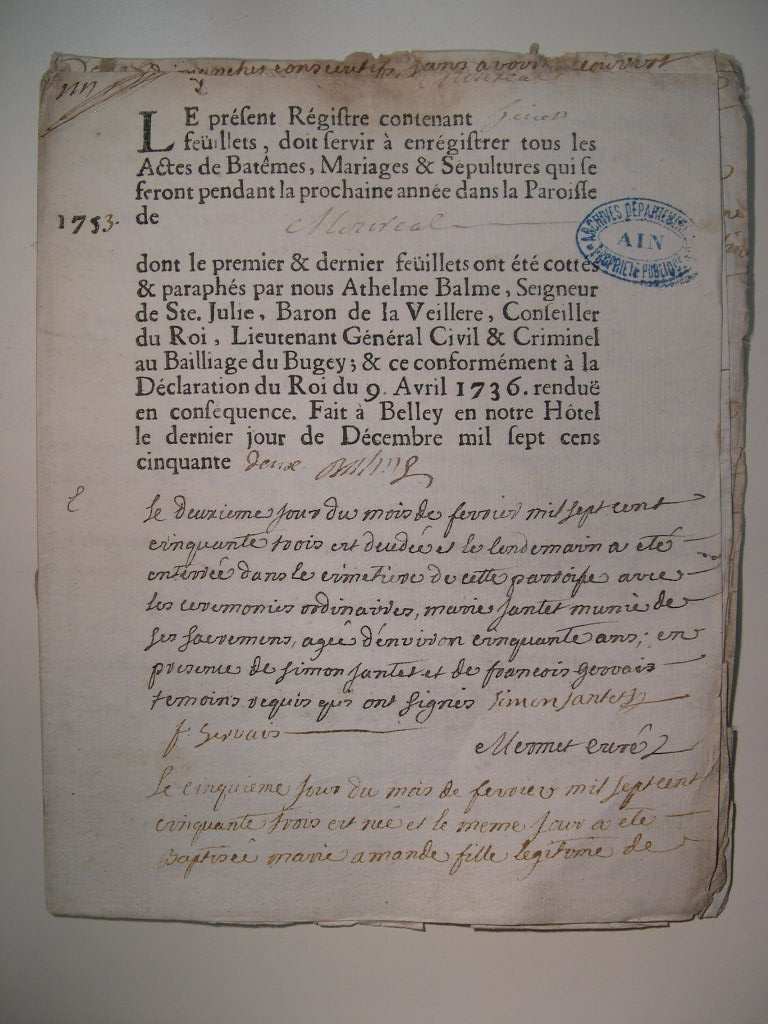 manches consecutifs, sans avoir
LE présent Régistre contenant
feüillets, doit servir à enrégistrer tous les
Actes de Batêmes, Mariages & Sépultures qui se
feront pendant la prochaine année dans la Paroisse
1753. de Montreal
ARCHIVES DÉPARTEMENT
AIN
PROPRIÉTÉ PUBLIQUE
dont le premier & dernier feüillets ont été cottés
& paraphés par nous Athelme Balme, Seigneur
de Ste. Julie, Baron de la Veillere, Conseiller
du Roi, Lieutenant Général Civil & Criminel
au Bailliage du Bugey; & ce conformément à la
Déclaration du Roi du 9. Avril 1736. renduë
en conséquence. Fait à Belley en notre Hôtel
le dernier jour de Décembre mil sept cens
cinquante deux
le deuxieme jour du mois de fevrier mil sept cent
cinquante trois est decedée et le lendemain a eté
enterrée dans le cimetiere de cette parroisse avec
les ceremonies ordinaires, marie jantet munie de
ses sacremens, ageé d'environ cinquante ans; en
presence de simon jantet et de francois Gervais
temoins requis qui ont signés simon jantet
f. Gervais
Mermet curé
Le cinquieme jour du mois de fevrier mil sept cent
cinquante trois est neé et le meme jour a eté
Baptisée marie amande fille legitime de